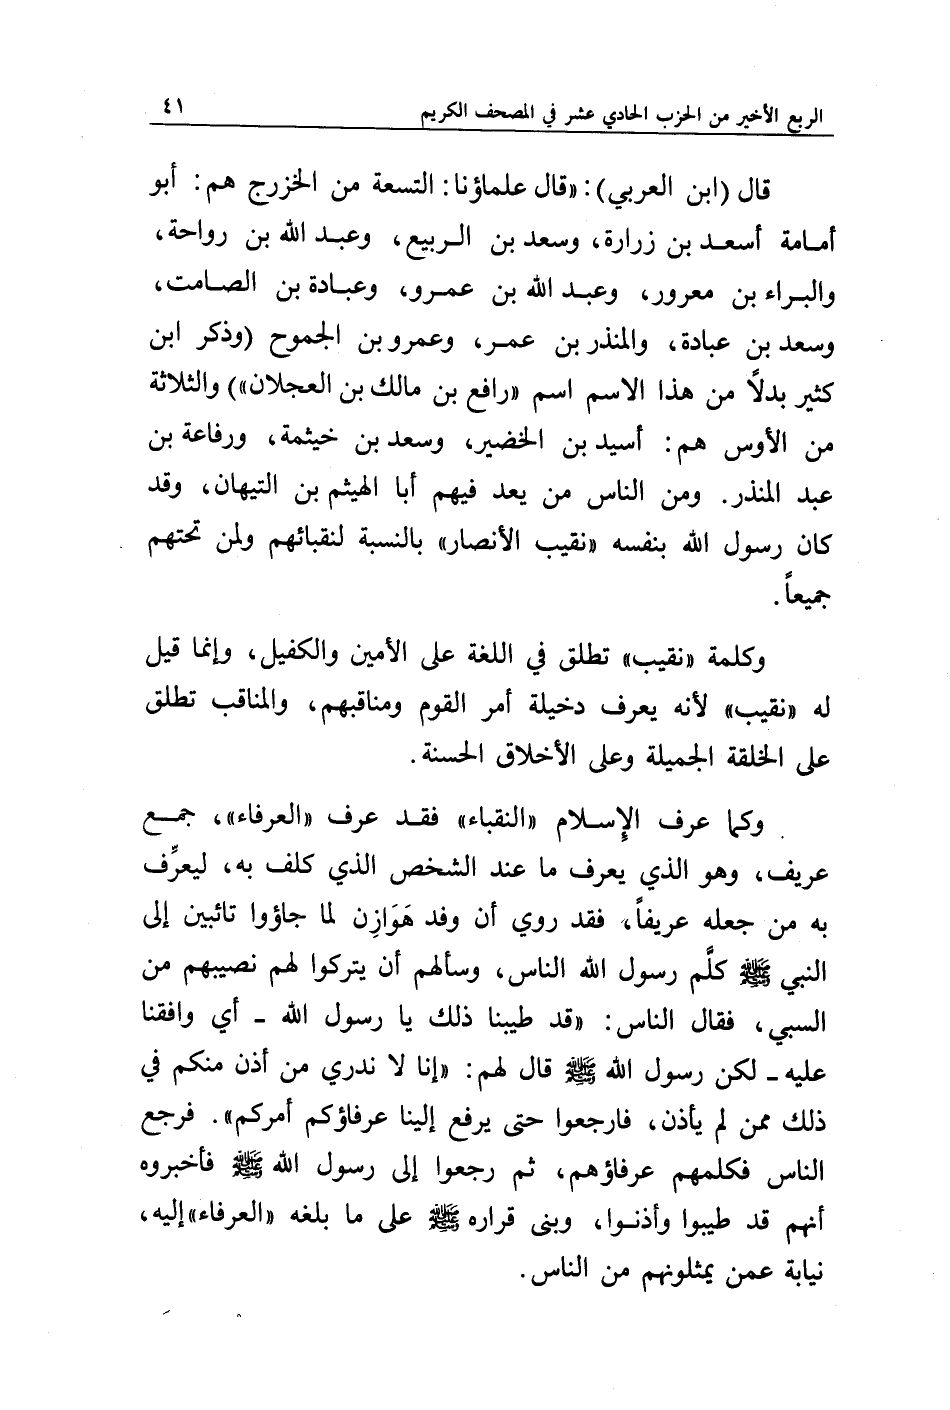 الربع الأخير من الحزب الحادي عشر في المصحف الكريم ٤١
قال (ابن العربي): «قال علماؤنا: التسعة من الخزرج هم: أبو
أمامة أسعد بن زرارة، وسعد بن الربيع، وعبد الله بن رواحة،
والبراء بن معرور، وعبد الله بن عمرو، وعبادة بن الصامت،
وسعد بن عبادة، والمنذر بن عمر، وعمرو بن الجموح (وذكر ابن
كثير بدلاً من هذا الاسم اسم «رافع بن مالك بن العجلان») والثلاثة
من الأوس هم: أسيد بن الخضير، وسعد بن خيثمة، ورفاعة بن
عبد المنذر. ومن الناس من يعد فيهم أبا الهيثم بن التيهان، وقد
كان رسول الله بنفسه «نقيب الأنصار» بالنسبة لنقبائهم ولمن تحتهم
جميعاً.
وكلمة «نقيب» تطلق في اللغة على الأمين والكفيل، وإنما قيل
له «نقيب» لأنه يعرف دخيلة أمر القوم ومناقبهم، والمناقب تطلق
على الخلقة الجميلة وعلى الأخلاق الحسنة.
وكما عرف الإسلام «النقباء» فقد عرف «العرفاء»، جمع
عريف، وهو الذي يعرف ما عند الشخص الذي كلف به، ليعرِّف
به من جعله عريفاً، فقد روي أن وفد هَوَازِن لما جاؤوا تائبين إلى
النبي ﷺ كلَّم رسول الله الناس، وسألهم أن يتركوا لهم نصيبهم من
السبي، فقال الناس: «قد طيبنا ذلك يا رسول الله ـ أي وافقنا
عليه ـ لكن رسول الله ﷺ قال لهم: «إنا لا ندري من أذن منكم في
ذلك ممن لم يأذن، فارجعوا حتى يرفع إلينا عرفاؤكم أمركم». فرجع
الناس فكلمهم عرفاؤهم، ثم رجعوا إلى رسول الله ﷺ فأخبروه
أنهم قد طيبوا وأذنوا، وبنى قراره ﷺ على ما بلغه «العرفاء» إليه،
نيابة عمن يمثلونهم من الناس.